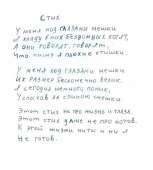 Стих
У меня под глазами мешки
Я кладу в них бездомных котят,
А они говорят, говорят,
Что пишу я плохие стишки.
У меня под глазами мешки
Их размер бесконечно велик.
Я сегодня немного поник,
Услыхав за спиною смешки.
Этот стих не про жизнь и глаза.
Этот стих даже не про котов.
К этой жизни пити и ни л
Не готов.